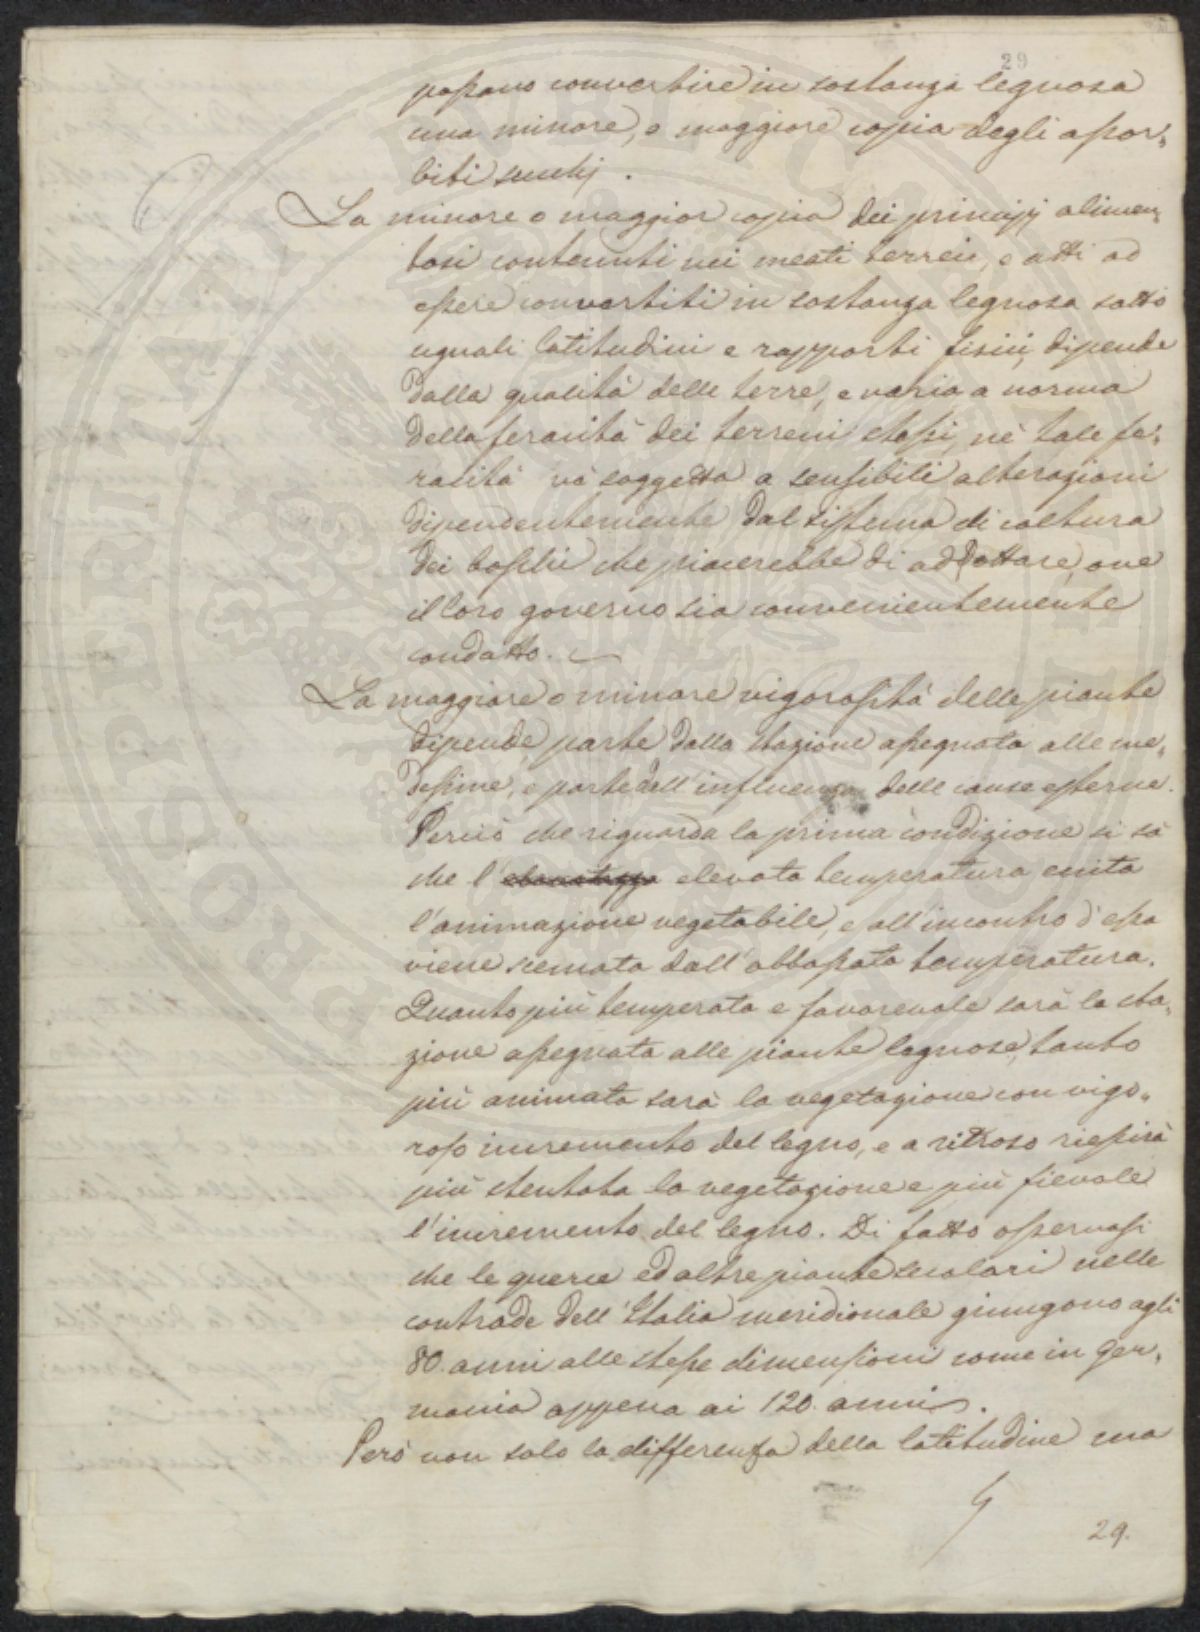 29
possano convertire in sostanza legnosa
una minore, o maggiore copia degli assor-
biti succhj.
La minore o maggior copia dei principj alimen-
tosi contenuti nei meati terrei, e atti ad
essere convertiti in sostanza legnosa sotto
uguali latitudini e rapporti fisici, dipende
dalla qualità delle terre, e varia a norma
della feracità dei terreni stessi, nè tale fe-
racità và soggetta a sensibili alterazioni
dipendentemente dal sistema di coltura
dei boschi che piacerebbe di addottare, ove
il loro governo sia convenientemente
condotto.
La maggiore o minore vigorosità delle piante
dipende, parte dalla stazione assegnata alle me-
desime, e parte dell'influenza delle cause esterne.
Perciò che riguarda la prima condizione si sà
che l' elevata temperatura eccita
l'animazione vegetabile, e all'incontro d'essa
viene scemata dall'abbassata temperatura.
Quanto più temperata e favorevole sarà la sta-
zione assegnata alle piante legnose, tanto
più animata sarà la vegetazione con vigo-
roso incremento del legno, e a ritroso riescirà
più stentata la vegetazione e più fievole
l'incremento del legno. Di fatto osservasi
che le querce ed altre piante secolari nelle
contrade dell'Italia meridionale giungono agli
80. anni alle stesse dimensioni come in Ger-
mania appena ai 120. anni.
Però non solo la differenza della latitudine ma
29.
PROSPERITATI PUBLICAE